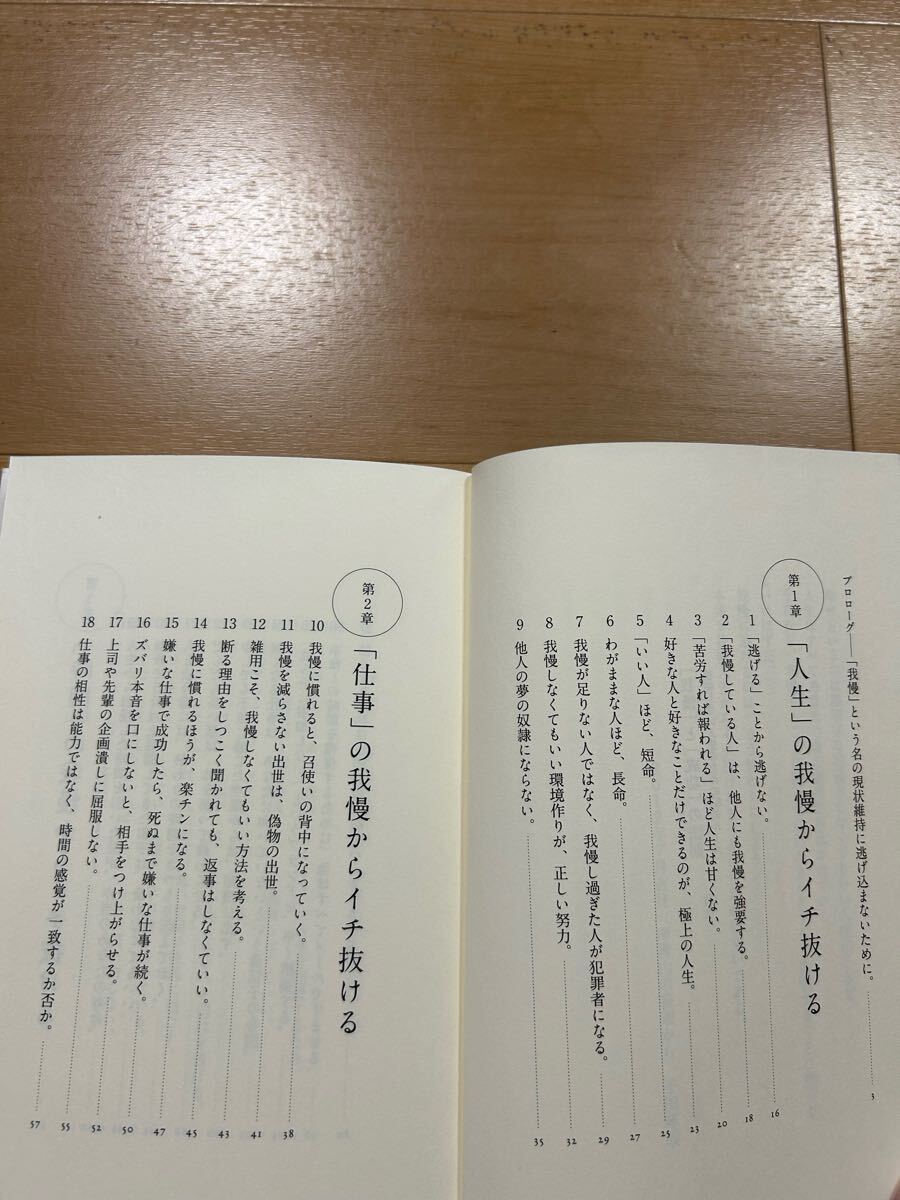 プロローグ──「我慢」という名の現状維持に逃げ込まないために。 3
第1章 「人生」の我慢からイチ抜ける
1 「逃げる」ことから逃げない。 16
2 「我慢している人」は、他人にも我慢を強要する。 18
3 「苦労すれば報われる」ほど人生は甘くない。 20
4 好きな人と好きなことだけできるのが、極上の人生。 23
5 「いい人」ほど、短命。 25
6 わがままな人ほど、長命。 27
7 我慢が足りない人ではなく、我慢し過ぎた人が犯罪者になる。 29
8 我慢しなくてもいい環境作りが、正しい努力。 32
9 他人の夢の奴隷にならない。 35
第2章 「仕事」の我慢からイチ抜ける
10 我慢に慣れると、召使いの背中になっていく。 38
11 我慢を減らさない出世は、偽物の出世。 41
12 雑用こそ、我慢しなくてもいい方法を考える。 43
13 断る理由をしつこく聞かれても、返事はしなくていい。 45
14 我慢に慣れるほうが、楽チンになる。 47
15 嫌いな仕事で成功したら、死ぬまで嫌いな仕事が続く。 50
16 ズバリ本音を口にしないと、相手をつけ上がらせる。 52
17 上司や先輩の企画潰しに屈服しない。 55
18 仕事の相性は能力ではなく、時間の感覚が一致するか否か。 57